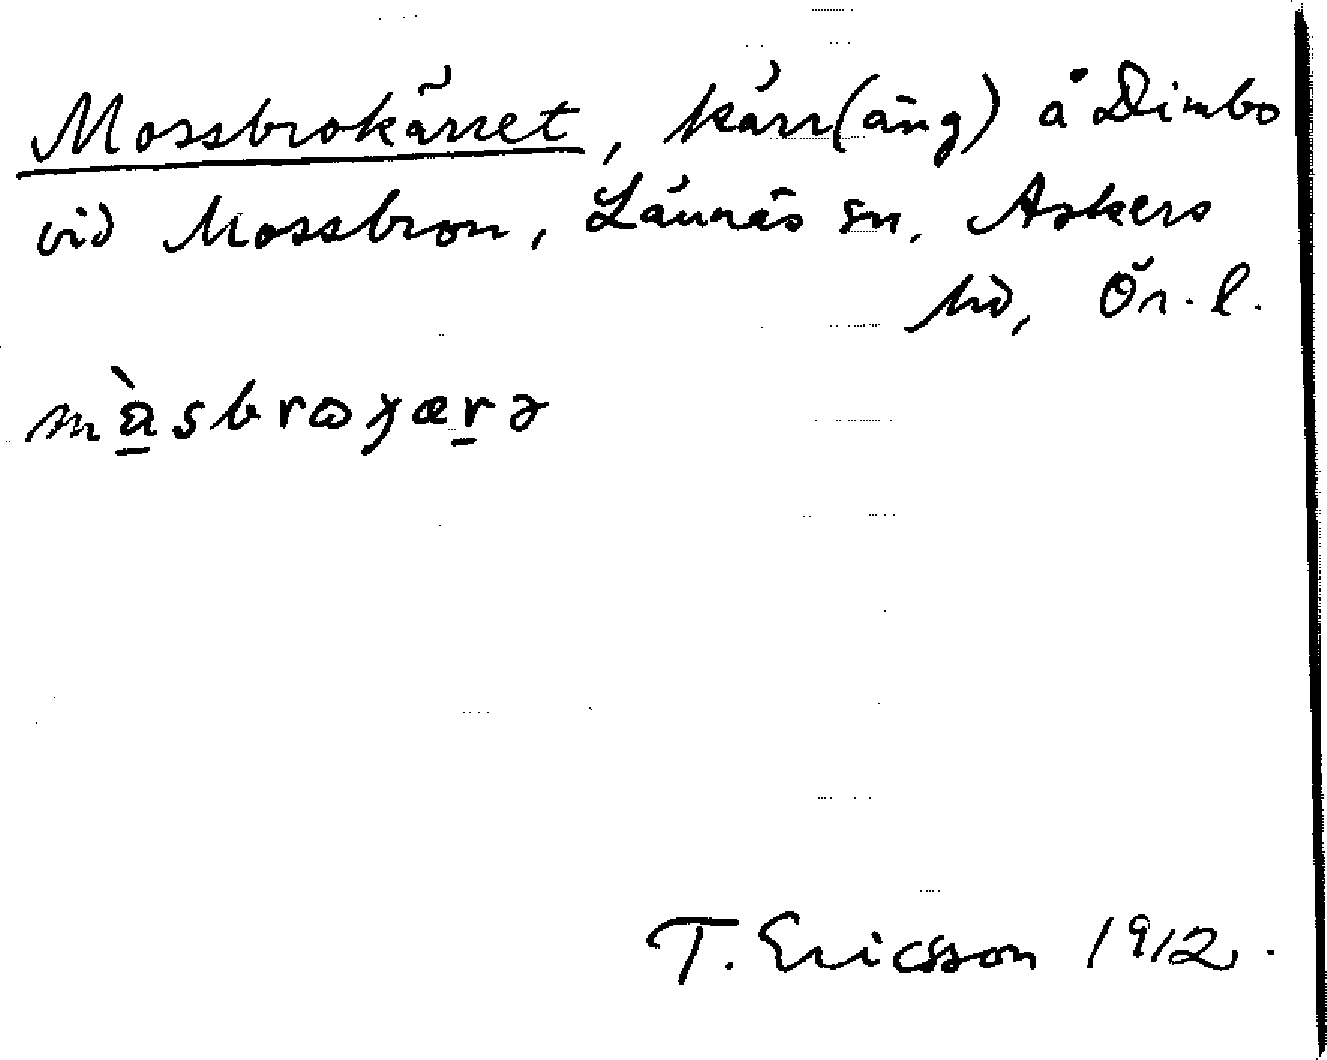 Mossbrokärret, kärr(äng) å Dimbo
vid Mossbron, Lännäs sn, Askers
hd, Ör. l.
T. Ericsson 1912.